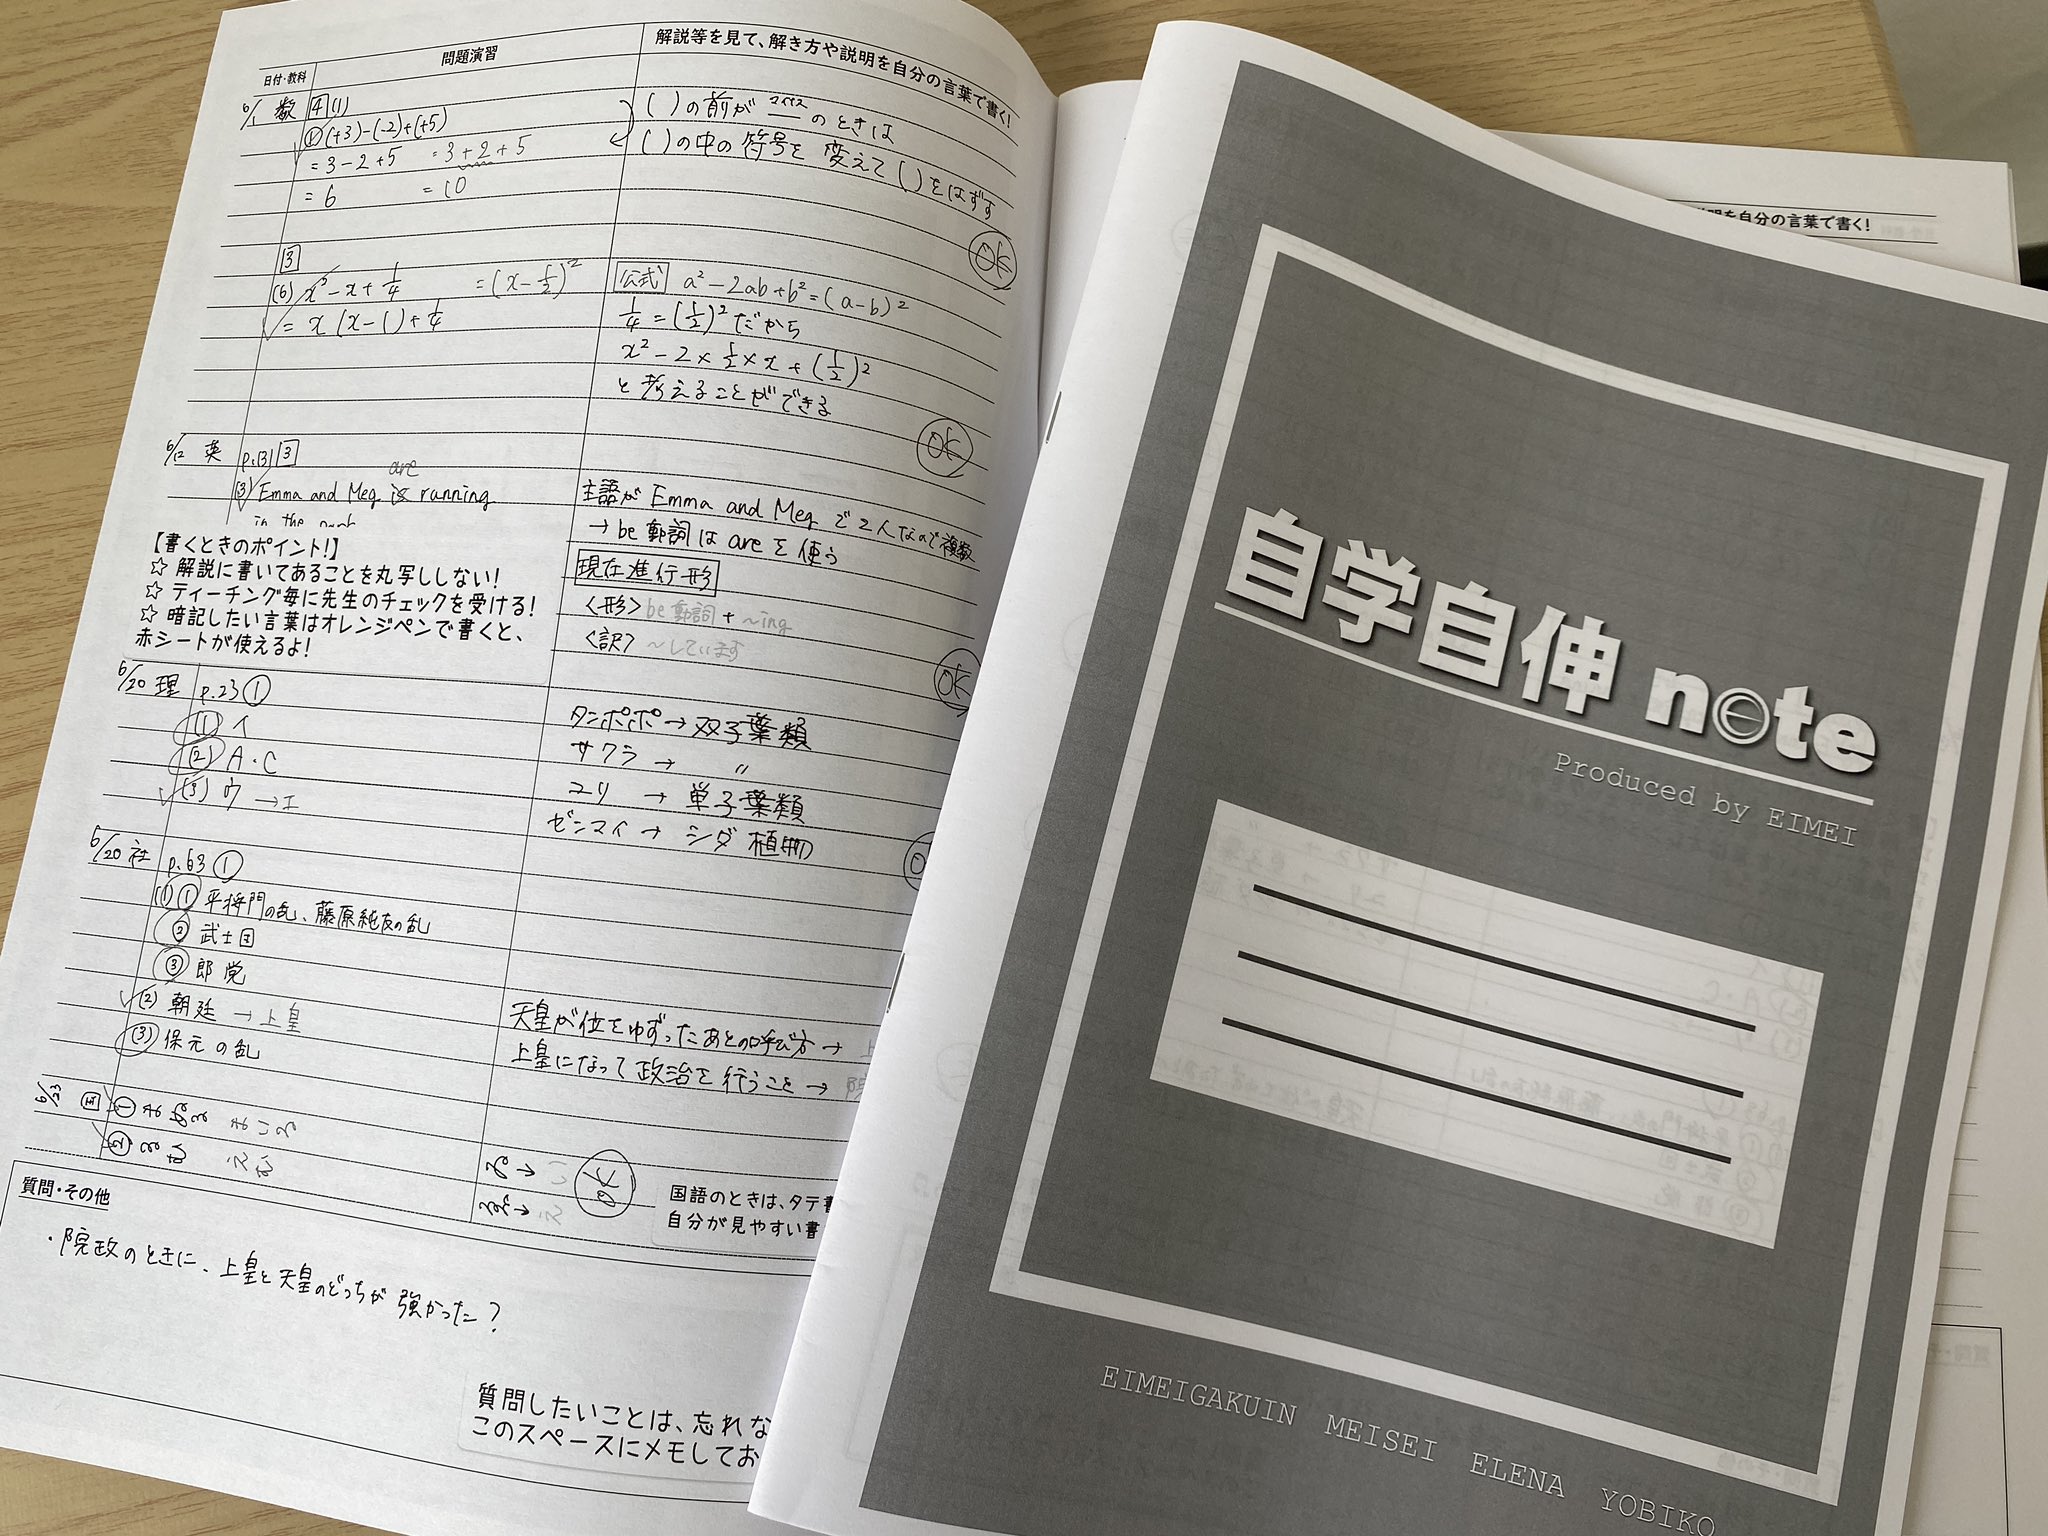 日付・教科
問題演習
解説等を見て、解き方や説明を自分の言葉で書く!
6/1 数 4 (1)
① (+3)-(-2)+(+5)
= 3-2+5 = 3+2+5
= 6 = 10
( )の前が マイナス ー のときは
( )の中の符号を 変えて ( )をはずす
OK
3
(6) x²-x+1/4 =(x-1/2)²
= x(x-1)+1/4
公式 a²-2ab+b²=(a-b)²
1/4=(1/2)²だから
x²-2×1/2×x+(1/2)²
と考えることができる
OK
6/12 英 p.131 3
are
(3) Emma and Meg is running
in the park
主語が Emma and Meg で2人なので複数
→be動詞は are を使う
現在進行形
<形> be動詞 + ~ing
<訳> ~しています
OK
【書くときのポイント!】
☆ 解説に書いてあることを丸写ししない!
☆ ティーチング毎に先生のチェックを受ける!
☆ 暗記したい言葉はオレンジペンで書くと、
赤シートが使えるよ!
6/20 理 p.23 ①
(1) イ
(2) A・C
(3) ウ →エ
タンポポ→ 双子葉類
サクラ → 〃
ユリ → 単子葉類
ゼンマイ→ シダ植物
6/20 社 p.63 ①
(1) ① 平将門の乱、藤原純友の乱
② 武士団
③ 郎党
(2) 朝廷 → 上皇
(3) 保元の乱
天皇が位をゆずったあとの呼び方→ 上
上皇になって政治を行うこと→ 院
6/23 国 ① まゐる まいる
② ゑむ えむ
ゐ→ い
ゑ→ え
OK
国語のときは、タテ書
自分が見やすい書
質問・その他
・院政のときに、上皇と天皇のどっちが 強かった?
質問したいことは、忘れな
このスペースにメモしてお
明を自分の言葉で書く!
自学自伸 note
Produced by EIMEI
EIMEIGAKUIN MEISEI ELENA YOBIKO